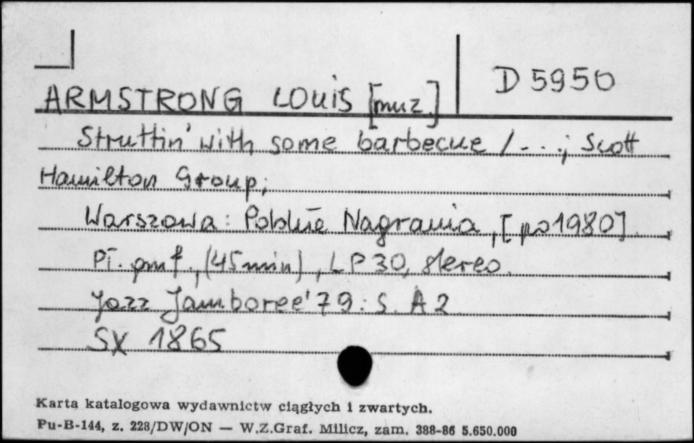 D 5950
ARMSTRONG LOUIS [muz.]
Struttin' with some barbecue / ...; Scott
Hamilton Group;
Warszawa: Polskie Nagrania, [po 1980].
Pł. gmf., (45 min), LP 30, stereo.
Jazz Jamboree '79: S. A 2
SX 1865
Karta katalogowa wydawnictw ciągłych i zwartych.
Pu-B-144, z. 228/DW/ON — W.Z.Graf. Milicz, zam. 388-86 5.650.000